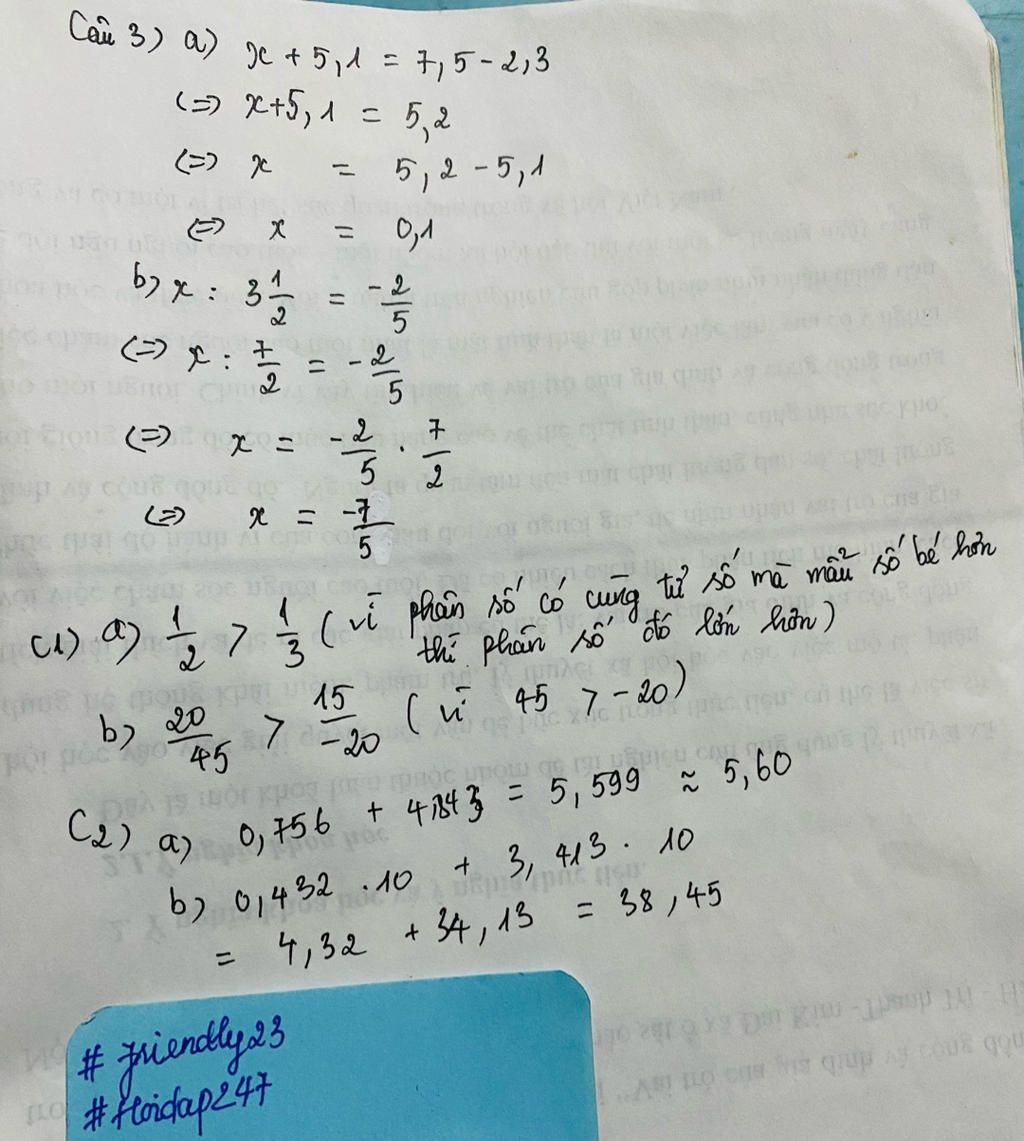 Câu 3) a) x + 5,1 = 7,5 - 2,3
(=) x+5,1 = 5,2
(=) x = 5,2 - 5,1
(=) x = 0,1
b) x : 3 1/2 = -2/5
(=) x : 7/2 = -2/5
(=) x = -2/5 . 7/2
(=) x = -7/5
C1) a) 1/2 > 1/3 (vì phân số có cùng tử số mà mẫu số bé hơn
thì phân số đó lớn hơn)
b) 20/45 > 15/-20 (vì 45 > -20)
C2) a) 0,756 + 4,843 = 5,599 ≈ 5,60
b) 0,432 . 10 + 3,413 . 10
= 4,32 + 34,13 = 38,45
# friendly23
# Hoidap247